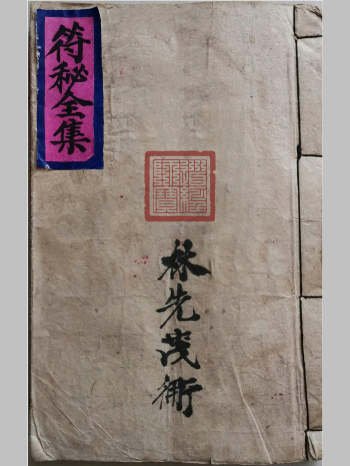 符秘全集
林先茂術